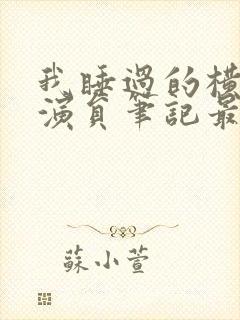 我睡過的橫
演員筆記最
蘇小萱